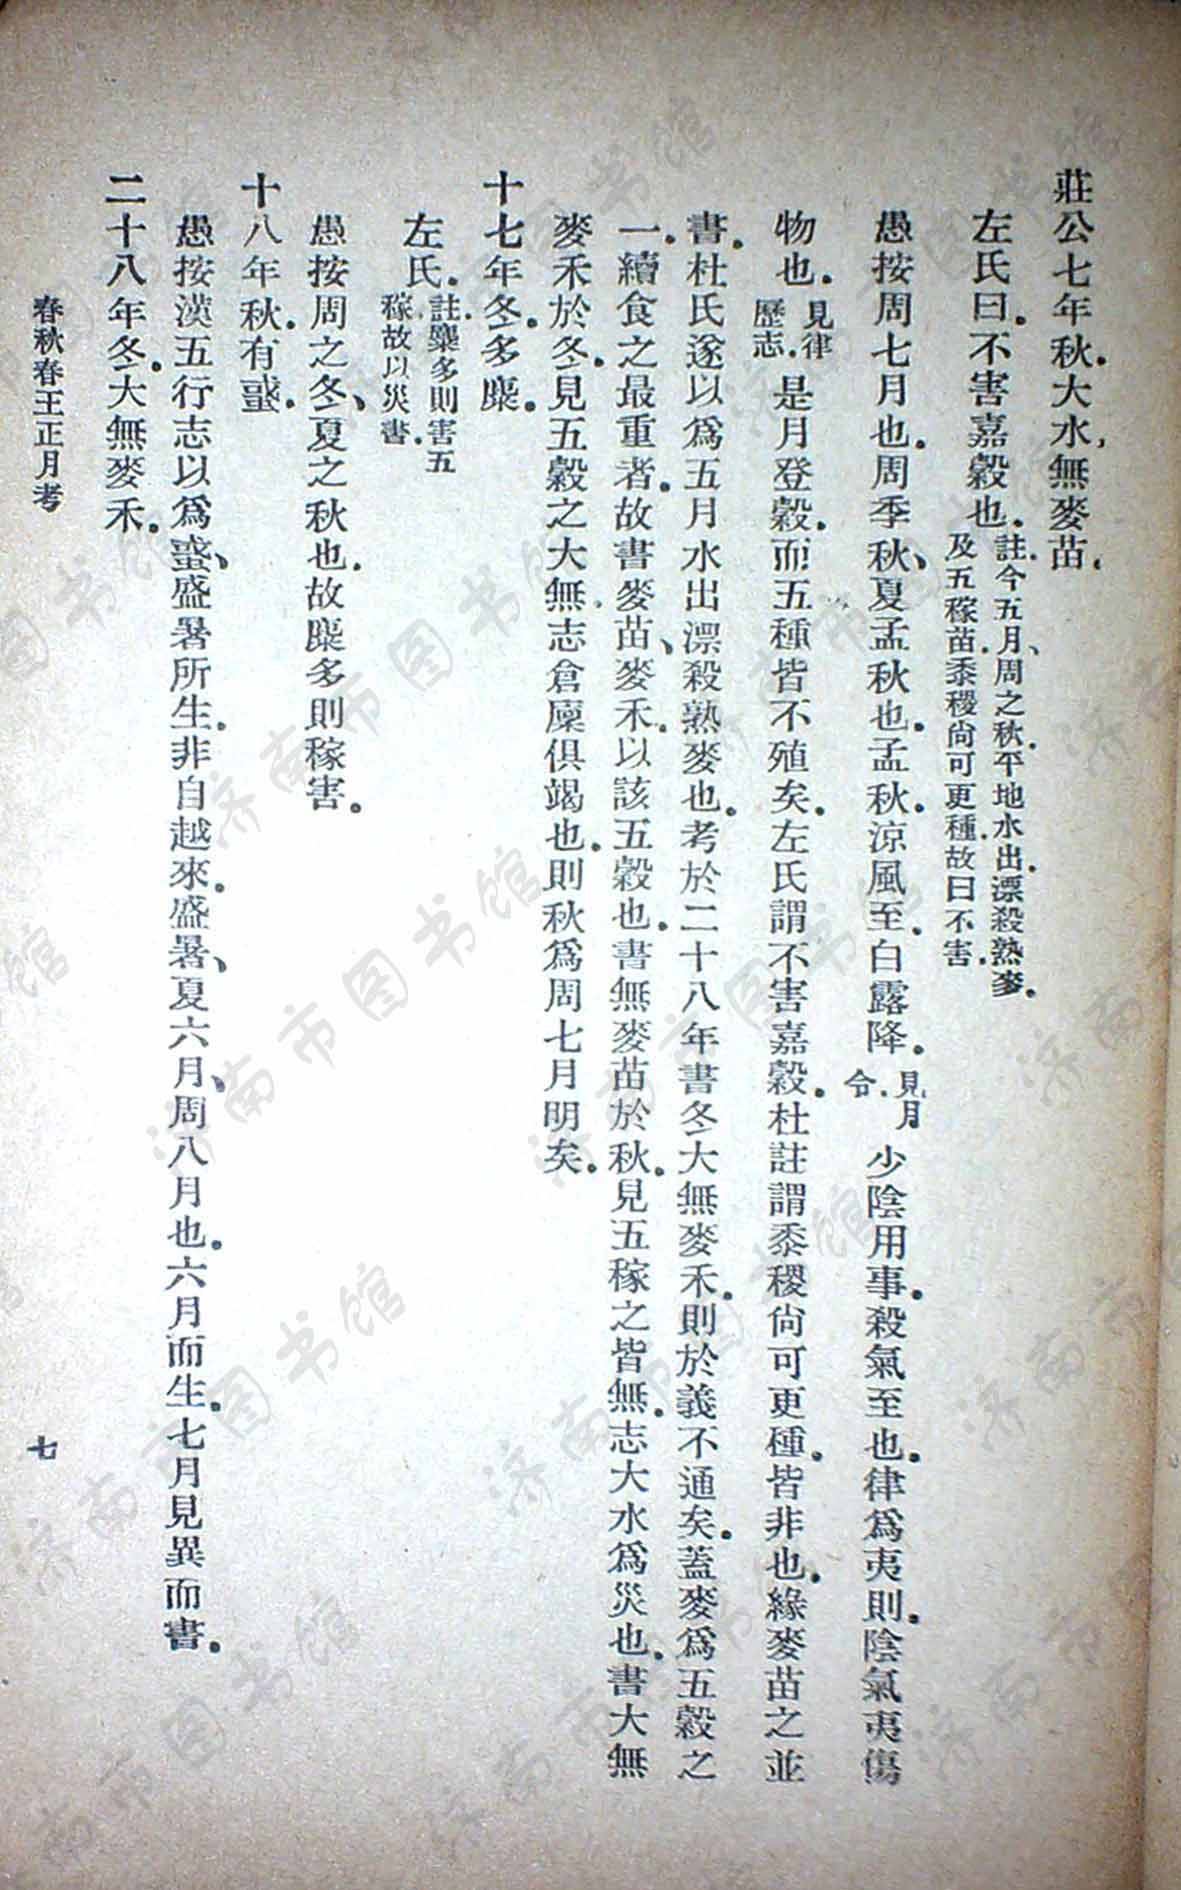 莊公七年秋.大水,無麥苗.
左氏曰.不害嘉穀也.註.今五月、周之秋.平地水出.漂殺熟麥.
及五稼苗.黍稷尙可更種.故曰不害.
愚按周七月也.周季秋、夏孟秋也.孟秋.涼風至.白露降.見月
令.少陰用事.殺氣至也.律爲夷則.陰氣夷傷
物也.見律
歷志.是月登穀.而五種皆不殖矣.左氏謂不害嘉穀.杜註謂黍稷尙可更種.皆非也.緣麥苗之並
書.杜氏遂以爲五月水出漂殺熟麥也.考於二十八年書冬大無麥禾.則於義不通矣.蓋麥爲五穀之
一.續食之最重者.故書麥苗、麥禾.以該五穀也.書無麥苗於秋.見五稼之皆無.志大水爲災也.書大無
麥禾於冬.見五穀之大無.志倉廩俱竭也.則秋爲周七月明矣.
十七年冬.多麋.
左氏.註.麋多則害五
稼.故以災書.
愚按周之冬、夏之秋也.故麋多則稼害.
十八年秋.有蜮.
愚按漢五行志以爲蜮、盛暑所生.非自越來.盛暑、夏六月、周八月也.六月而生.七月見異而書.
二十八年冬.大無麥禾.
春秋春王正月考
七
济南市图书馆